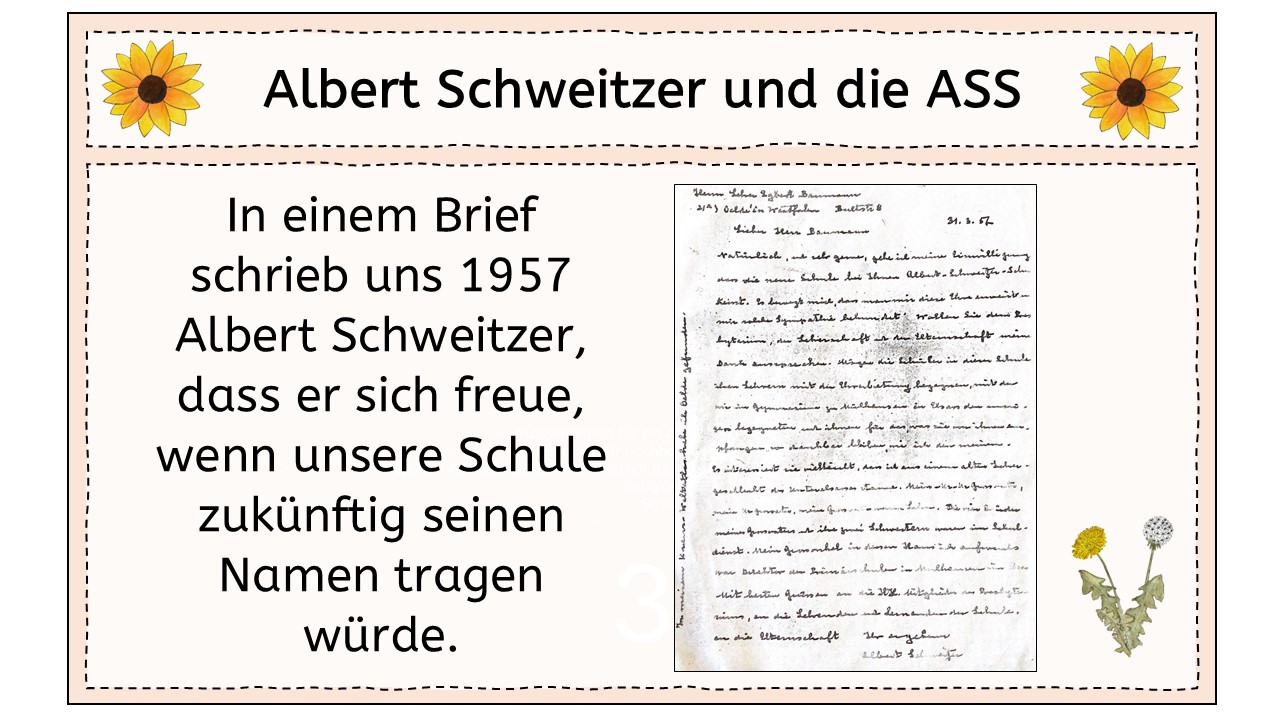 Albert Schweitzer und die ASS
In einem Brief
schrieb uns 1957
Albert Schweitzer,
dass er sich freue,
wenn unsere Schule
zukünftig seinen
Namen tragen
würde.
Herrn Lehrer Egbert Baumann
Oelde in Westfalen
Lieber Herr Baumann
Natürlich, und sehr gerne, gebe ich meine Einwilligung
dass die neue Schule bei Ihnen Albert-Schweitzer-Schu
heisst. Es bewegt mich, dass man mir diese Ehre erweist u
mir solche Sympathie bekundet. Wollen Sie dem Pres
byterium, der Lehrerschaft und der Elternschaft meinen
Dank aussprechen. Mögen die Schüler in dieser Schule
ihren Lehrern mit der Ehrerbietung begegnen, mit der
wir im Gymnasium zu Mülhausen im Elsass den
begegneten und ihnen für das was sie von ihnen
so dankbar bleiben wie ich den meinen.
Es interessiert sie vielleicht, dass ich aus einem alten Lehrer-
geschlecht des Unterelsasses stamme.
mein Urgrossvater, mein Grossvater waren Lehrer. Die vier Brüder
meines Grossvaters und ihre zwei Schwestern waren im Schul-
dienst. Mein Grossonkel in dessen Haus ich aufwuchs
war Direktor der Primärschulen in Mülhausen im
Mit besten Grüssen an die Mitglieder des Presbyte-
riums, an die Lehrenden und Lernenden der Schule,
an die Elternschaft Ihr ergebener
Albert Schweitzer
3